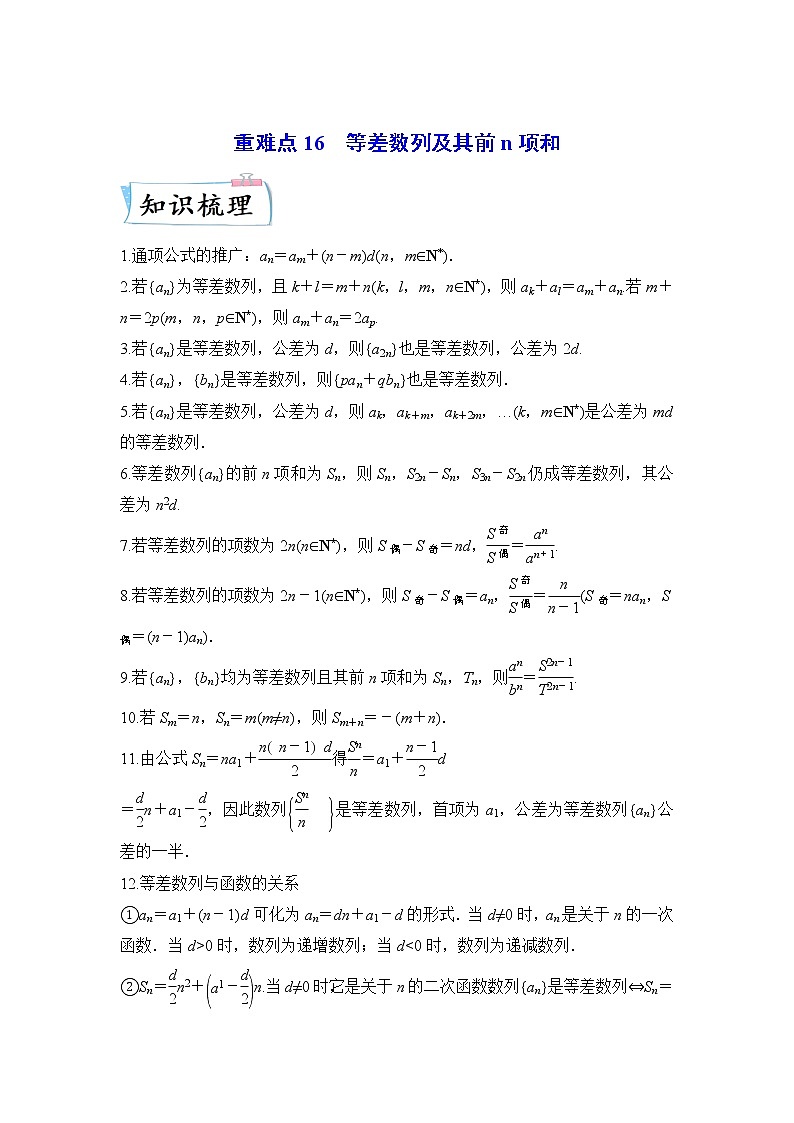 重难点16 等差数列及其前n项和
知识梳理
1.通项公式的推广：aₙ＝aₘ＋(n－m)d(n，m∈N*)．
2.若{aₙ}为等差数列，且k＋l＝m＋n(k，l，m，n∈N*)，则aₖ＋aₗ＝aₘ＋aₙ.若m＋
n＝2p(m，n，p∈N*)，则aₘ＋aₙ＝2aₚ.
3.若{aₙ}是等差数列，公差为d，则{a₂ₙ}也是等差数列，公差为2d.
4.若{aₙ}，{bₙ}是等差数列，则{paₙ＋qbₙ}也是等差数列．
5.若{aₙ}是等差数列，公差为d，则aₖ，aₖ₊ₘ，aₖ₊₂ₘ，…(k，m∈N*)是公差为md
的等差数列．
6.等差数列{aₙ}的前n项和为Sₙ，则Sₙ，S₂ₙ－Sₙ，S₃ₙ－S₂ₙ仍成等差数列，其公
差为n²d.
7.若等差数列的项数为2n(n∈N*)，则S偶－S奇＝nd，S奇/S偶＝aⁿ/aⁿ⁺¹.
8.若等差数列的项数为2n－1(n∈N*)，则S奇－S偶＝aₙ，S奇/S偶＝n/(n－1)(S奇＝naₙ，S
偶＝(n－1)aₙ)．
9.若{aₙ}，{bₙ}均为等差数列且其前n项和为Sₙ，Tₙ，则aⁿ/bⁿ＝S²ⁿ⁻¹/T²ⁿ⁻¹.
10.若Sₘ＝n，Sₙ＝m(m≠n)，则Sₘ₊ₙ＝－(m＋n)．
11.由公式Sₙ＝na₁＋n( n－1) d/2得Sⁿ/n＝a₁＋(n－1)/2 d
＝d/2 n＋a₁－d/2，因此数列{Sⁿ/n }是等差数列，首项为a₁，公差为等差数列{aₙ}公
差的一半．
12.等差数列与函数的关系
①aₙ＝a₁＋(n－1)d可化为aₙ＝dn＋a₁－d的形式．当d≠0时，aₙ是关于n的一次
函数．当d>0时，数列为递增数列；当d<0时，数列为递减数列．
②Sₙ＝d/2 n²＋(a¹－d/2)n.当d≠0时它是关于n的二次函数数列{aₙ}是等差数列⇔Sₙ＝